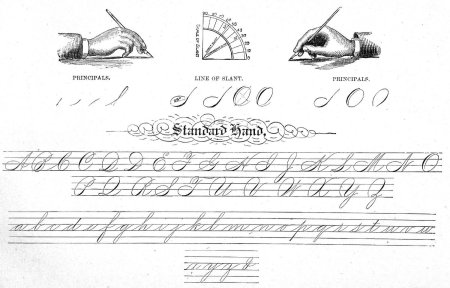 PRINCIPALS. LINE OF SLANT. PRINCIPALS.
Standard Hand.
A B C C D D E F G H I J K L M N O
P Q R S T U V W X Y Z
a b c d e f g h i j k l m n o p q r s t u v w
x y z &